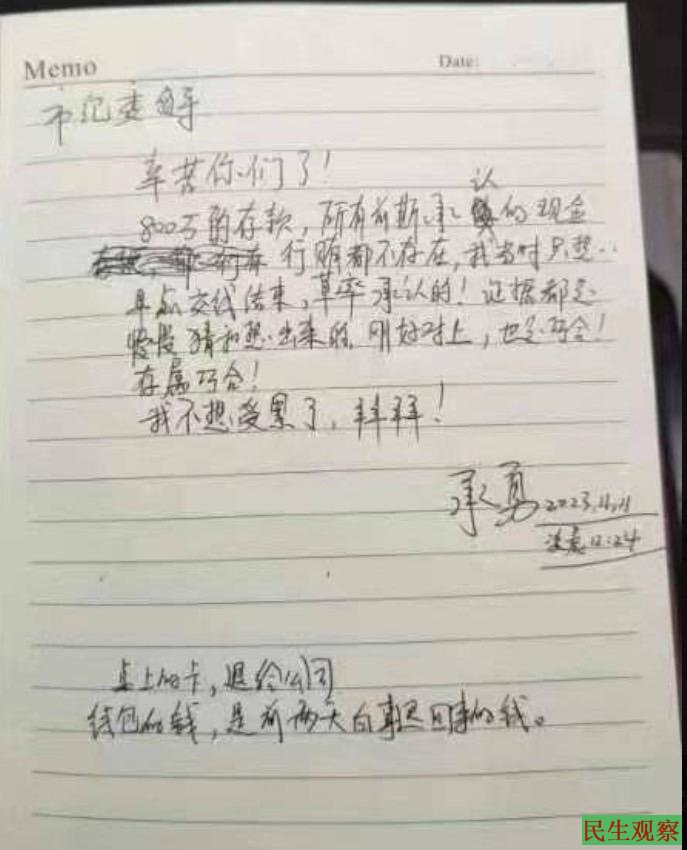 Memo
Date:
市纪委领导
辛苦你们了!
认
800万的存款,所有前期承的现金
行贿都不存在,我当时只想
早点交线结束,草率承认的!证据都是
慢慢猜和想出来的,刚好对上,也是巧合!
存属巧合!
我不想受累了,拜拜!
承勇 2023.11.11
凌晨12:24
桌上的卡,退给公司
钱包的钱,是前两天白事退回来的钱。
民生观察